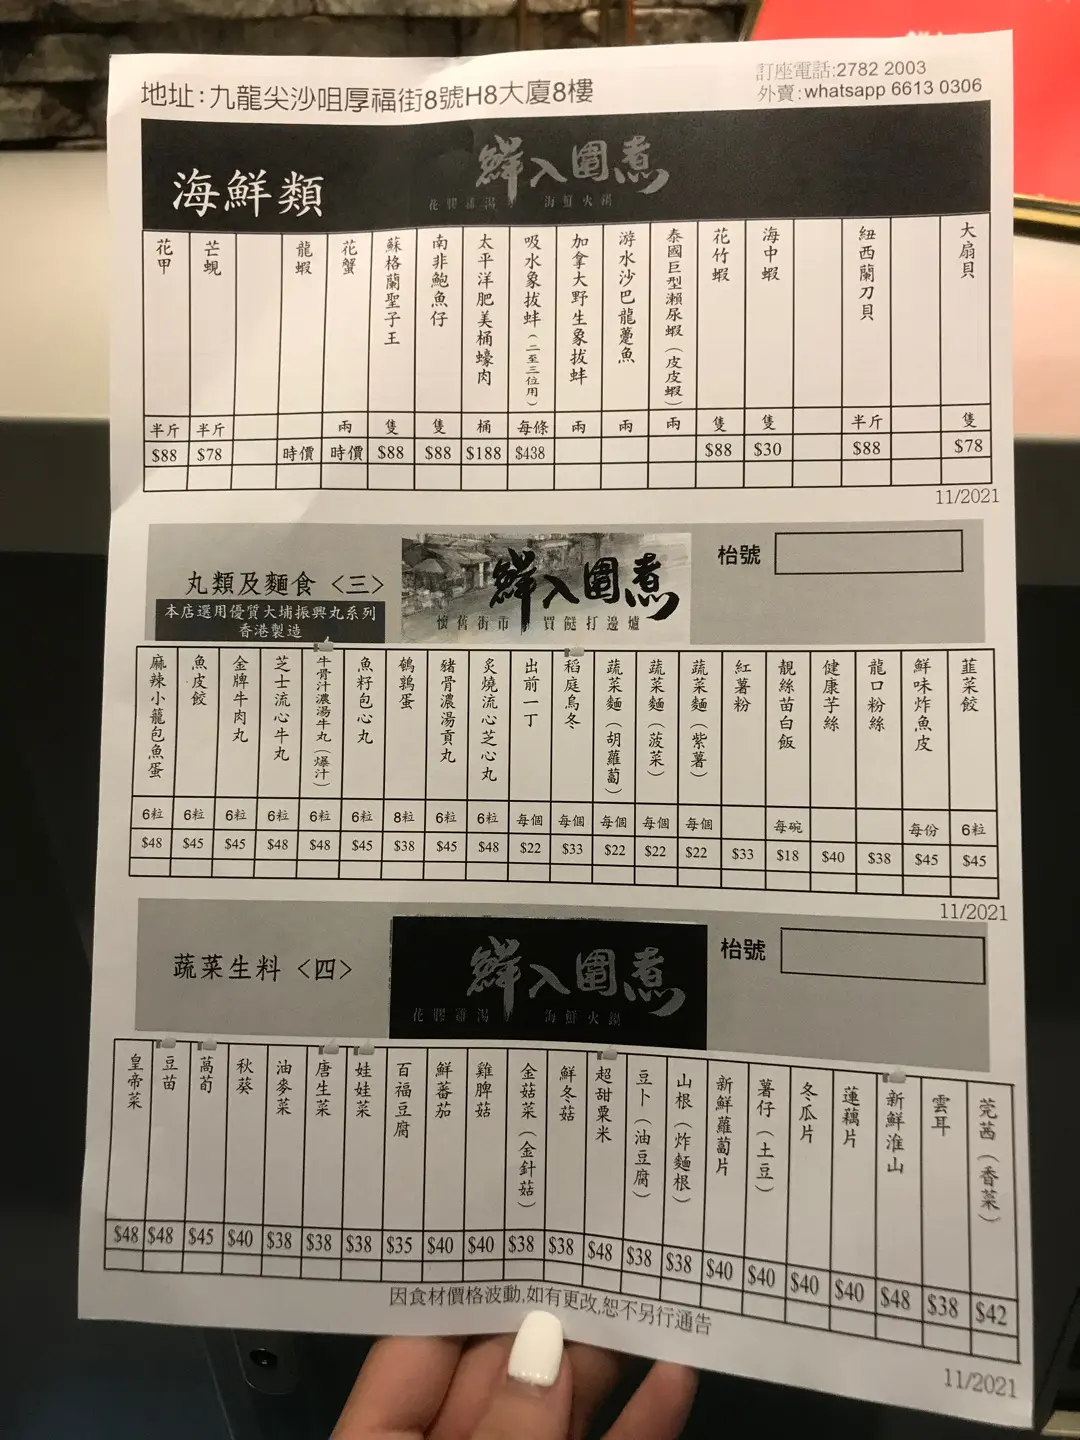 地址:九龍尖沙咀厚福街8號H8大廈8樓
訂座電話:2782 2003
外賣:whatsapp 6613 0306
海鮮類
鮮入圍煮
花膠雞湯 海鮮火鍋
花甲
芒蜆
龍蝦
花蟹
蘇格蘭聖子王
南非鮑魚仔
太平洋肥美桶蠔肉
吸水象拔蚌(二至三位用)
加拿大野生象拔蚌
游水沙巴龍躉魚
泰國巨型瀨尿蝦(皮皮蝦)
花竹蝦
海中蝦
紐西蘭刀貝
大扇貝
半斤 半斤 兩 隻 隻 桶 每條 兩 兩 兩 隻 隻 半斤 隻
$88 $78 時價 時價 $88 $88 $188 $438 $88 $30 $88 $78
11/2021
丸類及麵食<三>
本店選用優質大埔振興丸系列
香港製造
鮮入圍煮
懷舊街市 買餸打邊爐
枱號
麻辣小籠包魚蛋
魚皮餃
金牌牛肉丸
芝士流心牛丸
牛骨汁濃湯牛丸(爆汁)
魚籽包心丸
鵪鶉蛋
豬骨濃湯貢丸
炙燒流心芝心丸
出前一丁
稻庭烏冬
蔬菜麵(胡蘿蔔)
蔬菜麵(菠菜)
蔬菜麵(紫薯)
紅薯粉
靚絲苗白飯
健康芋絲
龍口粉絲
鮮味炸魚皮
韮菜餃
6粒 6粒 6粒 6粒 6粒 6粒 8粒 6粒 6粒 每個 每個 每個 每個 每個 每碗 每份 6粒
$48 $45 $45 $48 $48 $45 $38 $45 $48 $22 $33 $22 $22 $22 $33 $18 $40 $38 $45 $45
11/2021
蔬菜生料<四>
鮮入圍煮
花膠雞湯 海鮮火鍋
枱號
皇帝菜
豆苗
萵荀
秋葵
油麥菜
唐生菜
娃娃菜
百福豆腐
鮮蕃茄
雞脾菇
金菇菜(金針菇)
鮮冬菇
超甜粟米
豆卜(油豆腐)
山根(炸麵根)
新鮮蘿蔔片
薯仔(土豆)
冬瓜片
蓮藕片
新鮮淮山
雲耳
莞茜(香菜)
$48 $48 $45 $40 $38 $38 $38 $35 $40 $40 $38 $38 $48 $38 $38 $40 $40 $40 $40 $48 $38 $42
因食材價格波動,如有更改,恕不另行通告
11/2021